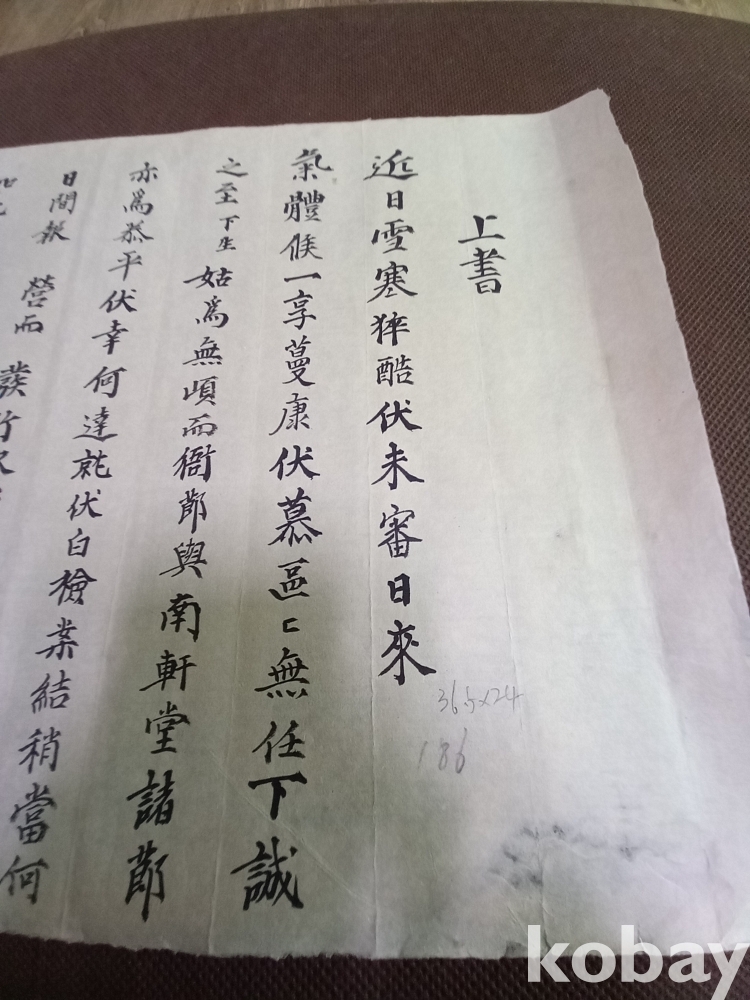 上書
近日雪寒猝酷伏未審日來
氣體候一享蔓康伏慕區〻無任下誠
之至下生姑爲無頉而衙節與南軒堂諸節
亦爲恭平伏幸何達就伏白檢案結稍當何
日間報營而
發行
36.5x24
186
kobay